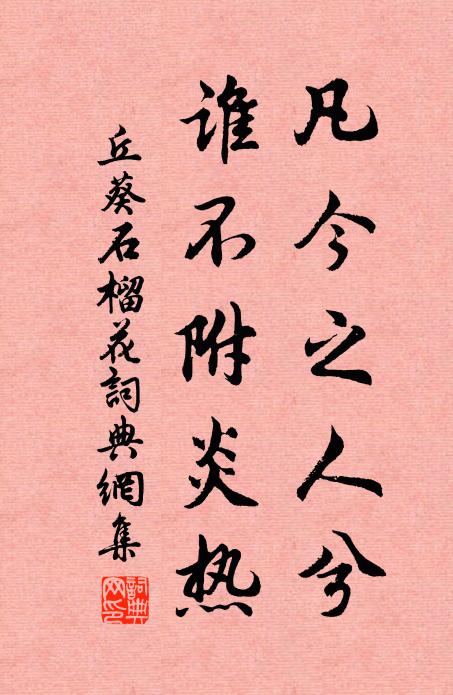 凡今之人兮
谁不附炎热
丘葵石榴花詞典網集
詞典
网印